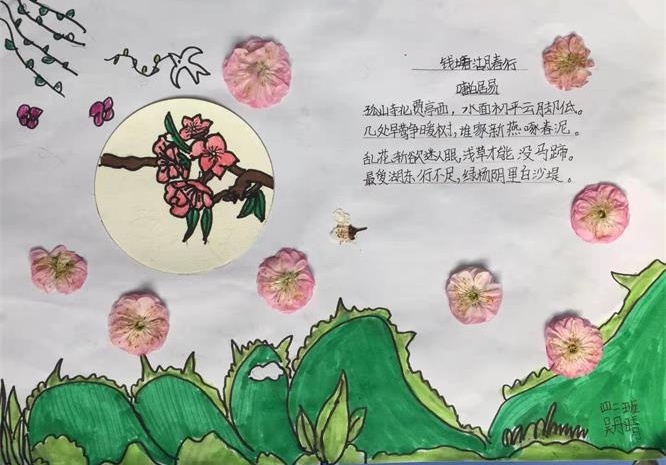 钱塘湖春行
唐白居易
孤山寺北贾亭西，水面初平云脚低。
几处早莺争暖树，谁家新燕啄春泥。
乱花渐欲迷人眼，浅草才能没马蹄。
最爱湖东行不足，绿杨阴里白沙堤。
四二班
吴月晴